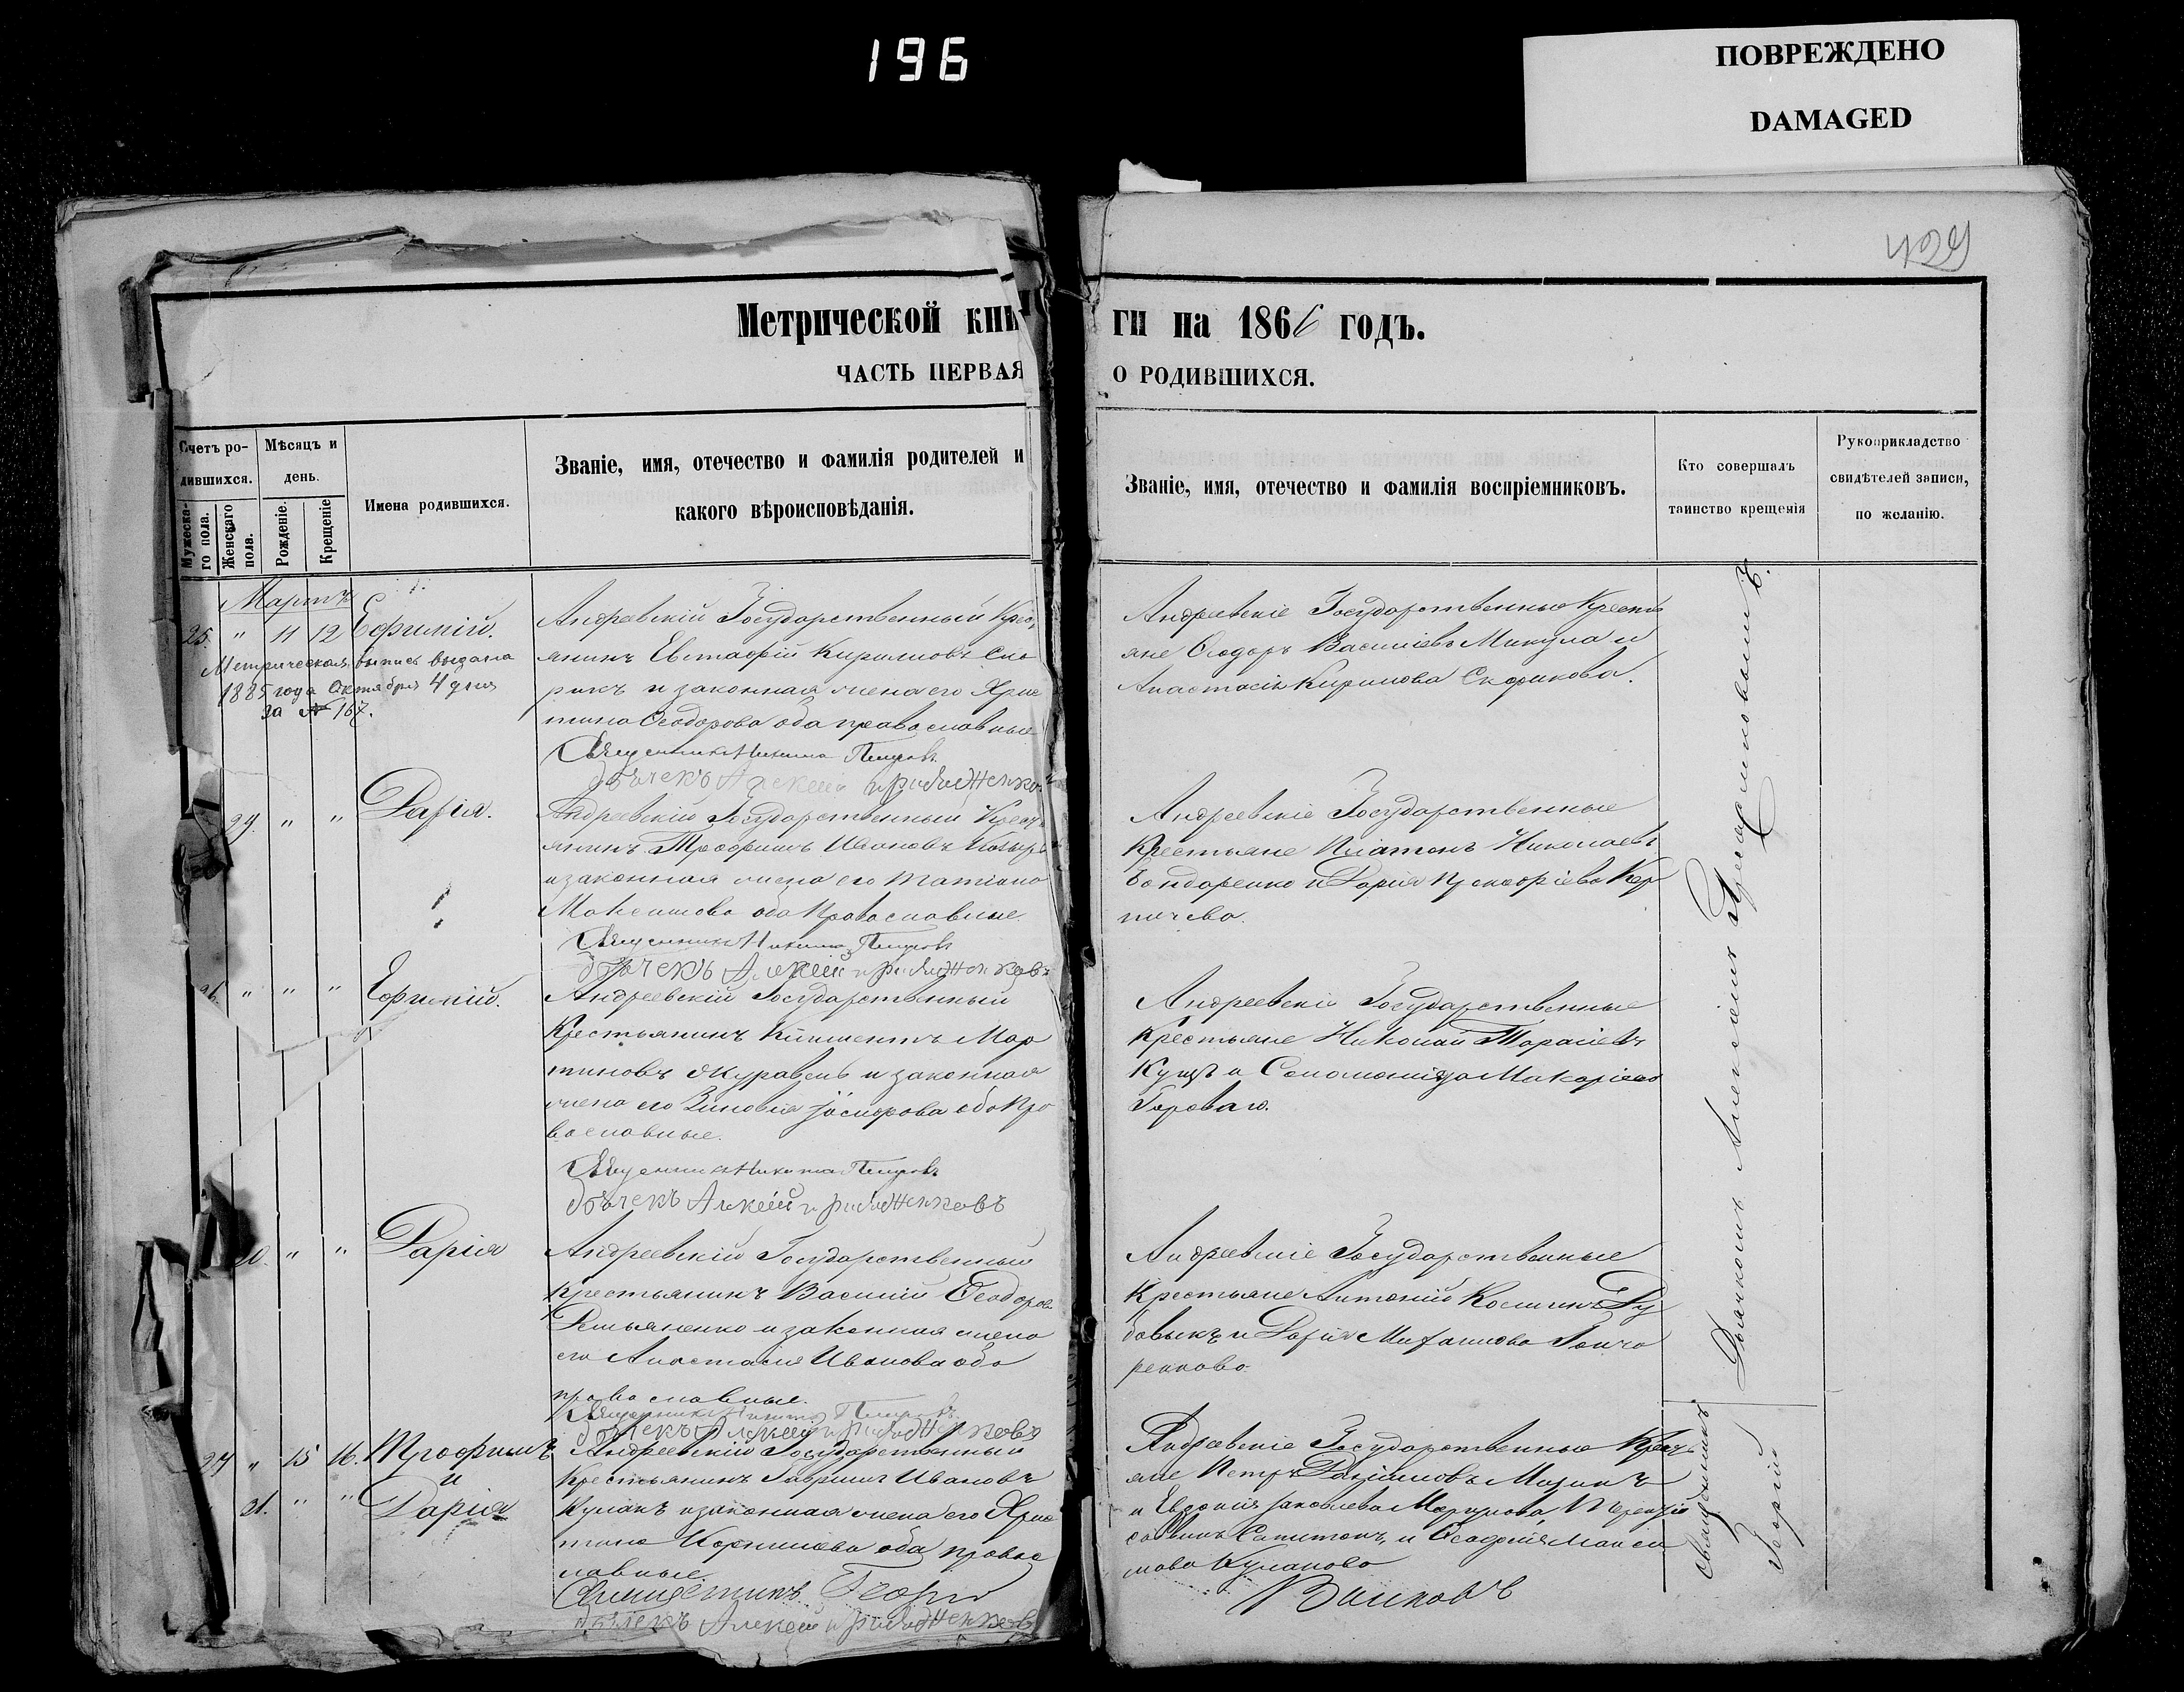 196
ПОВРЕЖДЕНО
DAMAGED
429
Метрической кни
ги на 1866 годъ.
ЧАСТЬ ПЕРВАЯ
О РОДИВШИХСЯ.
Счетъ ро-
дившихся.
Мужеска-
го пола.
Женскаго
пола.
Мѣсяцъ и
день.
Рожденіе.
Крещеніе
Имена родившихся.
Званіе, имя, отечество и фамилія родителей и
какого вѣроисповѣданія.
Званіе, имя, отечество и фамилія воспріемниковъ.
Кто совершалъ
таинство крещенія
Рукоприкладство
свидѣтелей записи,
по желанію.
Мартъ
25. " 11 12 Ефимій.
Метрическая выпись выдана
1885 года Октября 4 дня
за № 167.
Андреевскій Государственный Крес
янинъ Евстафій Кириловъ Ско
рикъ и законная жена его Хрис
тина Ѳеодорова оба православные
Священникъ Никита Петровъ
дьячекъ Алексей
Андреевскіе Государственные Крестья
яне Ѳеодоръ Васильевъ Микула и
Анастасія Кирилова Скорикова.
29. " " Дарія.
Андреевскій Государственный Крест
янинъ Трофимъ Ивановъ Козырь
и законная жена его Татіана
Максимова оба православные
Священникъ Никита Петровъ
дьячекъ Алексей
Андреевскіе Государственные
Крестьяне Платонъ Николаевъ
Бондаренко и Дарія Прокофіева Кер
ничева.
" " " Ефимій.
Андреевскій Государственный
Крестьянинъ Климентъ Мар
тиновъ Журавель и законная
жена его Зиновія оба пра
вославные.
Священникъ Никита Петровъ
дьячекъ Алексей
Андреевскіе Государственные
Крестьяне Николай Тарасіевъ
Кущъ и Соломонида Макаріева
" " Дарія
Андреевскій Государственный
Крестьянинъ Василій Ѳеодоров
Демьяненко и законная жена
его Анастасія Иванова оба
православные.
Священникъ Никита Петровъ
дьячекъ Алексей
Андреевскіе Государственные
Крестьяне Антоній Косминъ Ду
бовыкъ и Дарія Михаилова Гонча
ренкова
27 " 15 16. Трофимъ
и
31. " " Дарія
Андреевскій Государственный
Крестьянинъ Гавріилъ Ивановъ
Кулакъ и законная жена его Хрис
тина Корнилова оба правос
лавные.
Священникъ Георгій
дьячекъ Алексей
Андреевскіе Государственные Крест
яне Петръ
и Евдокія Яковлева
и Максимова Кулакова
Волковъ
Священникъ
Георгій